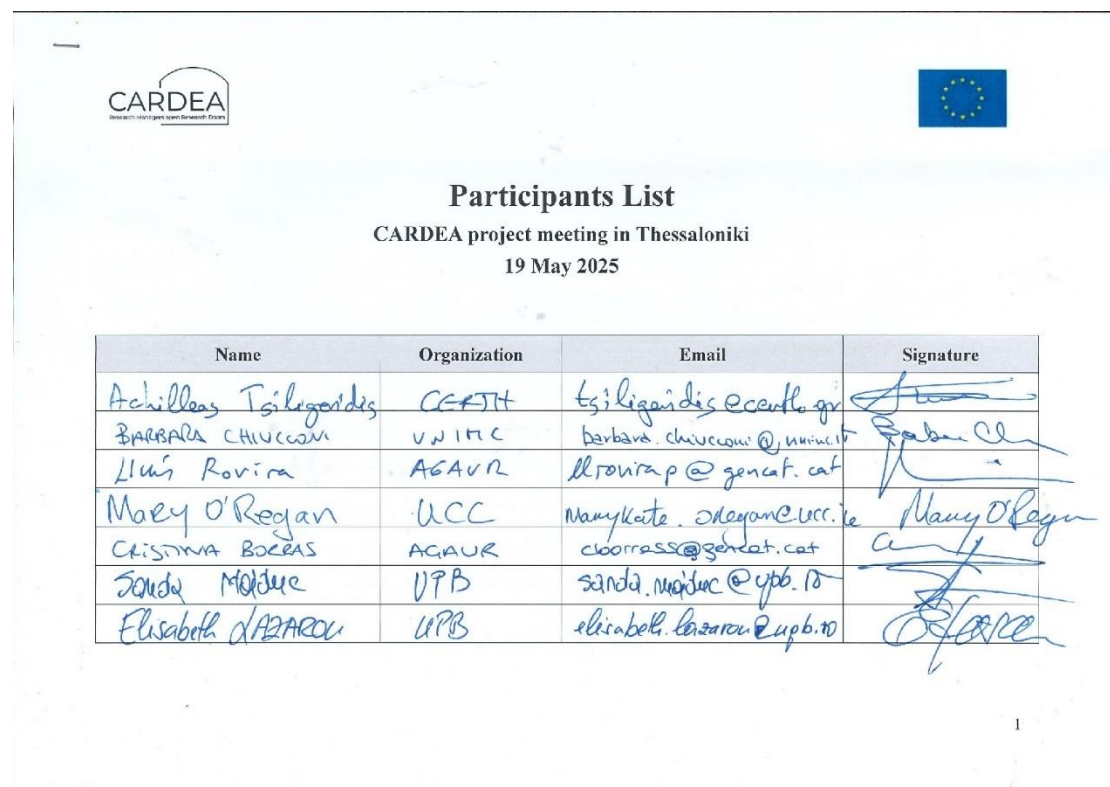 CARDEA
Research Managers open Research Doors
Participants List
CARDEA project meeting in Thessaloniki
19 May 2025
Name Organization Email Signature
Achilleas Tsiligeridis CERTH tsiligeridis@certh.gr
BARBARA CHIUCCONI UNIMC barbara.chiucconi@unimc.it
Lluís Rovira AGAUR llrovirap@gencat.cat
Mary O'Regan UCC MaryKate.oregan@ucc.ie Mary O'Regan
CRISTINA BORRAS AGAUR cborrass@gencat.cat
Sanda UPB
Elisabeth LAZAROU UPB elisabeth.lazarou@upb.ro
1